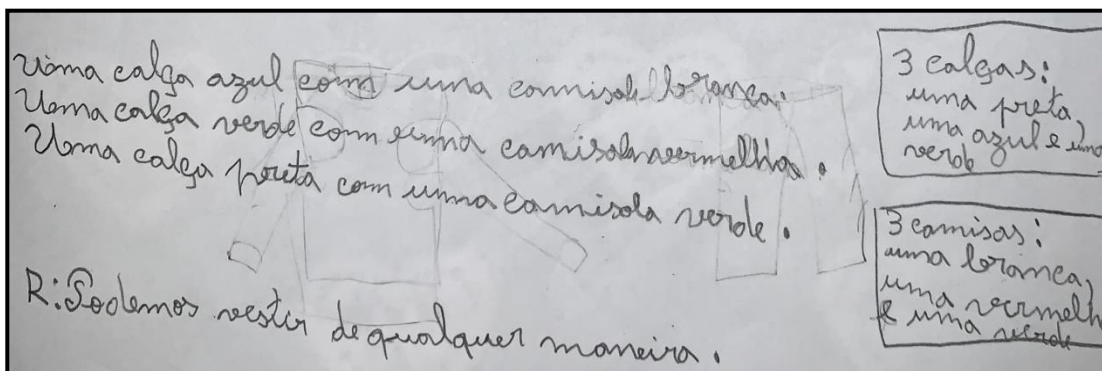 Uma calça azul com uma camisola branca.
Uma calça verde com uma camisola vermelha.
Uma calça preta com uma camisola verde.
R: Podemos vestir de qualquer maneira.
3 calças:
uma preta,
uma azul e uma
verde
3 camisas:
uma branca,
uma vermelh
e uma verde